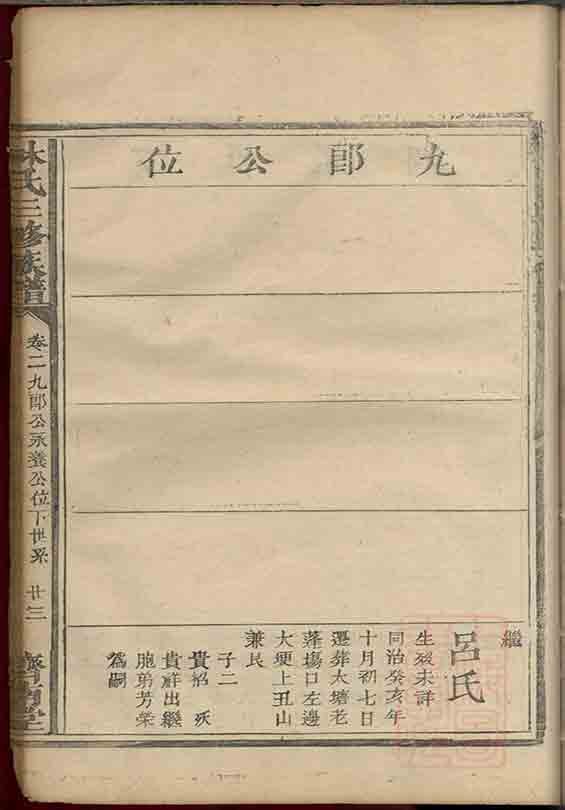 九郎公位
繼
呂氏
生歿未詳
同治癸亥年
十月初七日
遷葬太塘老
蓬塲口左邊
大埂上丑山
兼艮
子二
貴招 歿
貴祥出繼
胞弟芳榮
為嗣
林氏三修族譜
卷二九郎公永養公位下世系 廿三
濟南堂